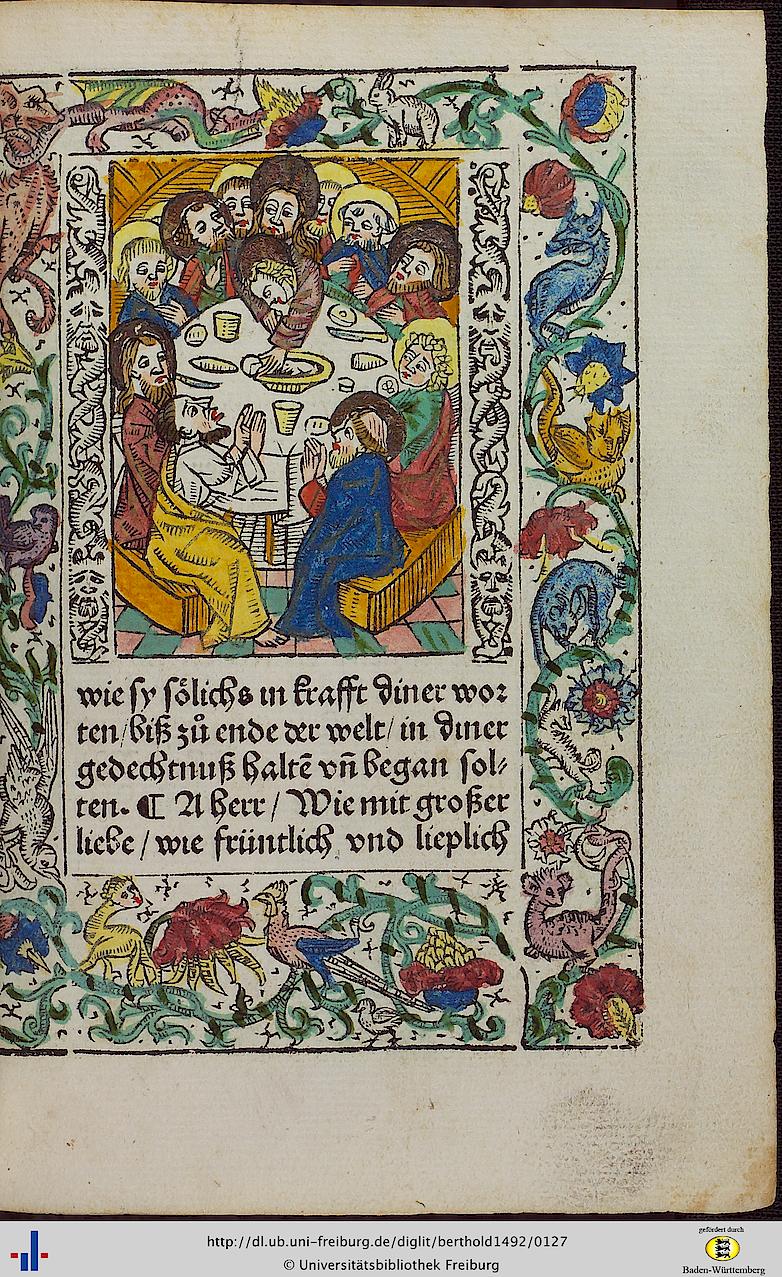 wie sy sȯlichs in krafft diner wor
ten / biß zuͦ ende der welt / in diner
gedechtnuß haltē vn̄ began sol⸗
ten. ¶ A herr / Wie mit großer
liebe / wie früntlich vnd lieplich
gefördert durch
http://dl.ub.uni-freiburg.de/diglit/berthold1492/0127
© Universitätsbibliothek Freiburg
Baden-Württemberg